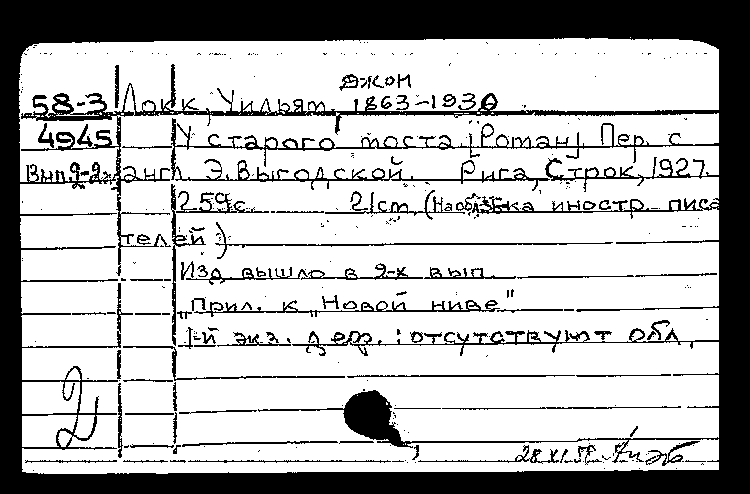 Джон
58-3 Локк, Уильям, 1863-1930
4945 У старого моста [Роман]. Пер. с
Вып. англ. Э. Выгодской. Рига, Строк, 1927.
259 с. 21 cm. (иностр. писа
телей)
Изд. вышло в 2-х вып.
"Прил. к "Новой ниве"
1-й экз. деф.: отсутствуют обл.
2
28 XI